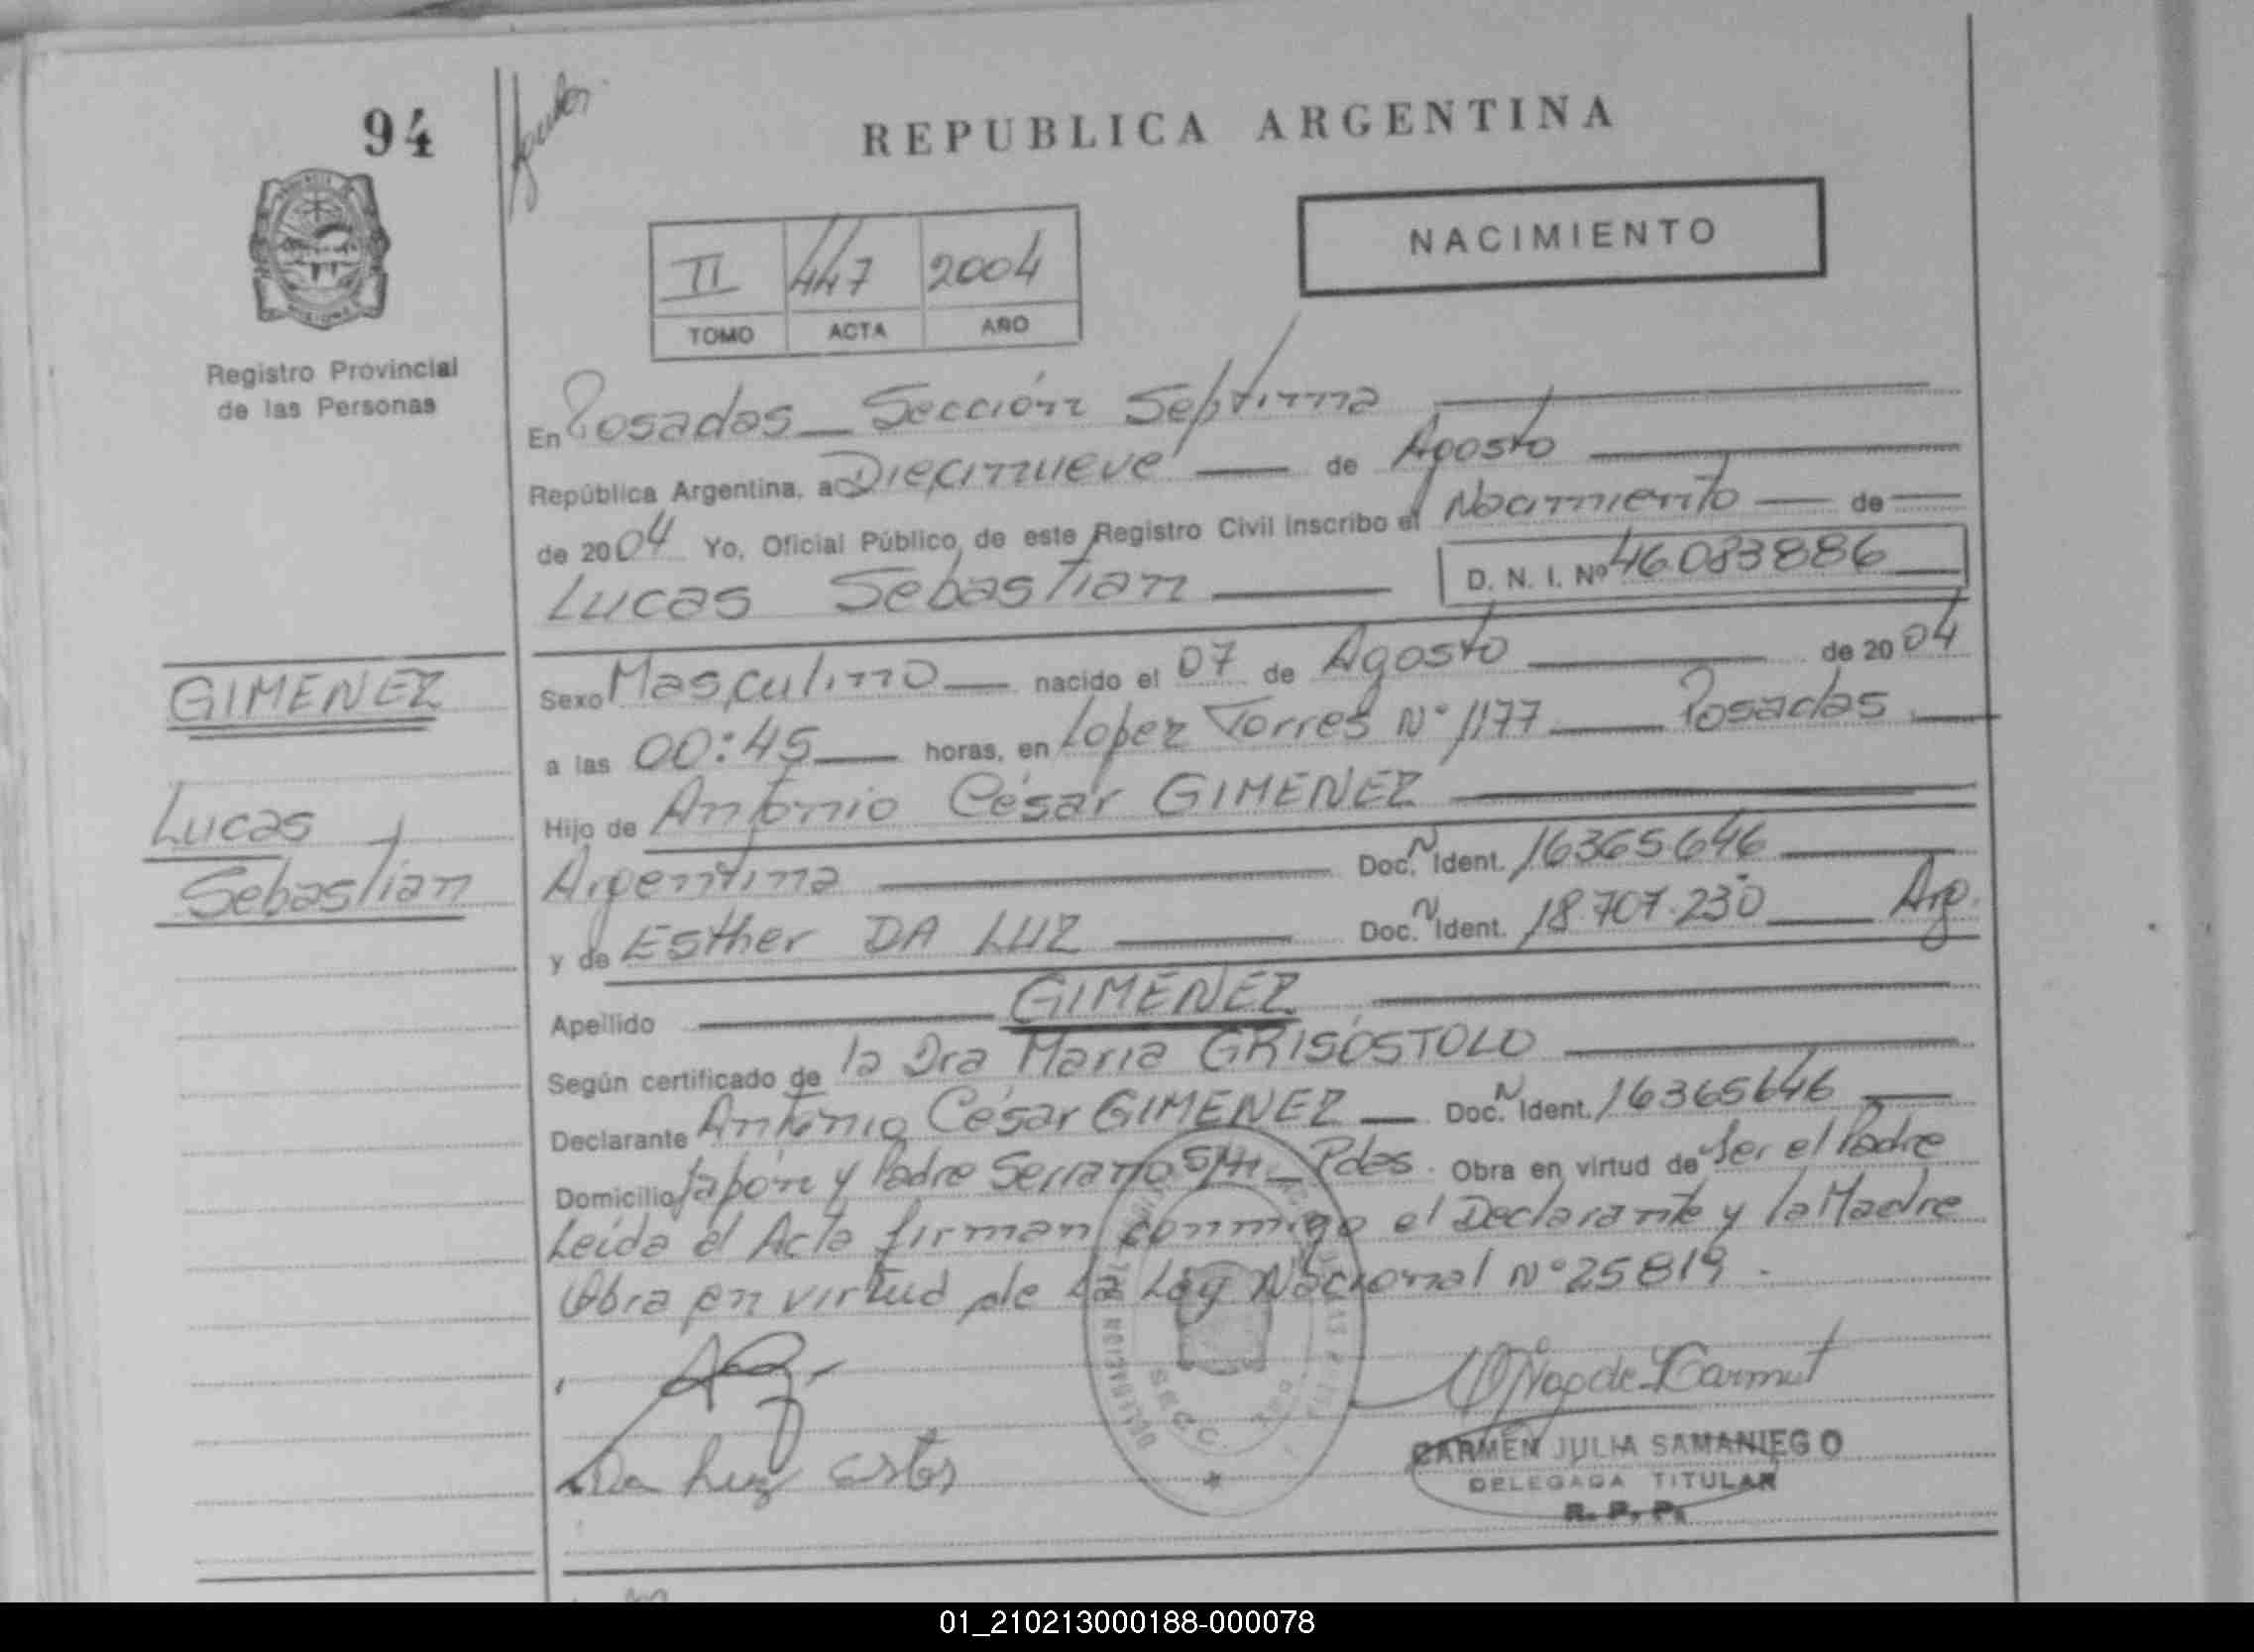 94
REPUBLICA ARGENTINA
NACIMIENTO
II 447 2004
TOMO ACTA AÑO
Registro Provincial
de las Personas
En Posadas — Sección Septima
República Argentina, a Diecinueve — de Agosto
de 2004 Yo, Oficial Público, de este Registro Civil inscribo el Nacimiento — de
Lucas Sebastian — D. N. I. Nº 46.083886
GIMENEZ
Lucas
Sebastian
Sexo Masculino — nacido el 07 de Agosto — de 2004
a las 00:45 — horas, en Lopez Torres N° 1177 — Posadas
Hijo de Antonio César GIMENEZ
Argentina — Doc. N Ident. 16365646
y de Esther DA LUZ — Doc. N Ident. 18.707.230 — Arg.
Apellido — GIMENEZ
Según certificado de la Dra Maria GRISÓSTOLO
Declarante Antonio César GIMENEZ — Doc. N Ident. 16365646
Domicilio Japón y Padre Serrano S/N — Pdas. Obra en virtud de Ser el Padre
Leída el Acta firman conmigo el Declarante y la Madre
Obra en virtud de la Ley Nacional N° 25819.
Da Luz
CARMEN JULIA SAMANIEGO
DELEGADA TITULAR
R. P. P.
SECC.
01_210213000188-000078